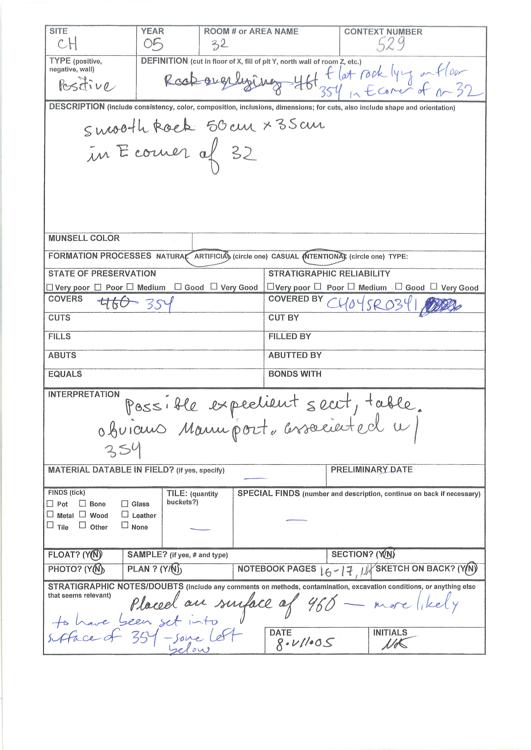 SITE YEAR ROOM # or AREA NAME CONTEXT NUMBER
CH 05 32 529
TYPE (positive, negative, wall) DEFINITION (cut in floor of X, fill of pit Y, north wall of room Z, etc.)
Positive Rock overlying 461 flat rock lying on floor
354 in E corner of rm 32
DESCRIPTION (include consistency, color, composition, inclusions, dimensions; for cuts, also include shape and orientation)
smooth Rock 50cm x 35cm
in E corner of 32
MUNSELL COLOR
FORMATION PROCESSES NATURAL ARTIFICIAL (circle one) CASUAL INTENTIONAL (circle one) TYPE:
STATE OF PRESERVATION STRATIGRAPHIC RELIABILITY
Very poor Poor Medium Good Very Good Very poor Poor Medium Good Very Good
COVERS 460 354 COVERED BY CH04SR0341
CUTS CUT BY
FILLS FILLED BY
ABUTS ABUTTED BY
EQUALS BONDS WITH
INTERPRETATION
Possible expedient seat, table.
obvious Manuport. associated w/
354
MATERIAL DATABLE IN FIELD? (if yes, specify) — PRELIMINARY DATE
FINDS (tick) TILE: (quantity buckets?) SPECIAL FINDS (number and description, continue on back if necessary)
Pot Bone Glass
Metal Wood Leather
Tile Other None
— —
FLOAT? (Y/N) SAMPLE? (if yes, # and type) SECTION? (Y/N)
PHOTO? (Y/N) PLAN ? (Y/N) NOTEBOOK PAGES 16-17, SKETCH ON BACK? (Y/N)
STRATIGRAPHIC NOTES/DOUBTS (Include any comments on methods, contamination, excavation conditions, or anything else
that seems relevant) Placed on surface of 460 — more likely
to have been set into
surface of 354 - some left
below
DATE INITIALS
8.VII.05